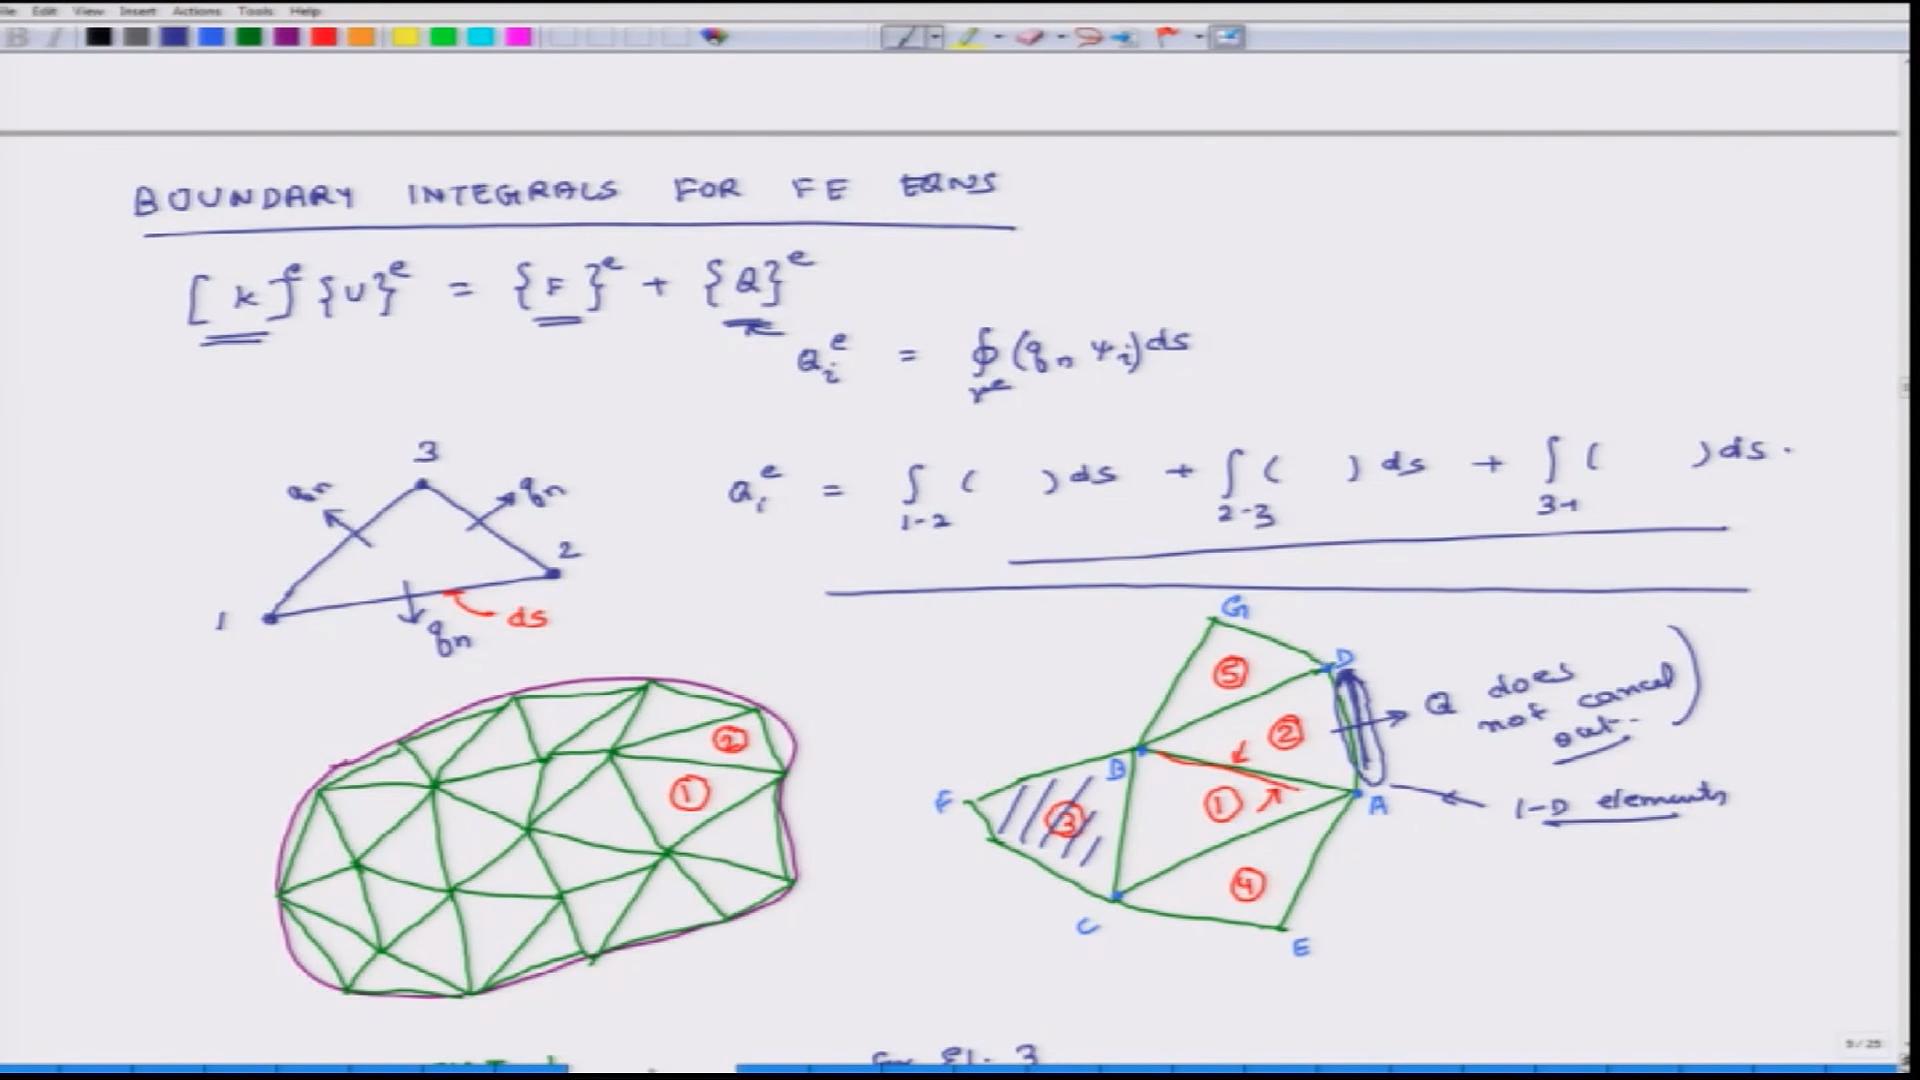 File Edit View Insert Actions Tools Help
BOUNDARY INTEGRALS FOR FE EQNS
[K]^e {U}^e = {F}^e + {Q}^e
Q_i^e = ∮_{Γ^e} (q_n ψ_i) ds
Q_i^e = ∫_{1-2} ( ) ds + ∫_{2-3} ( ) ds + ∫_{3-1} ( ) ds.
3
q_n
q_n
2
1
ds
q_n
G
D
5
Q does not cancel out.
2
2
B
1
1
A
1-D elements
F
3
4
C
E
For El. 3
9 / 25